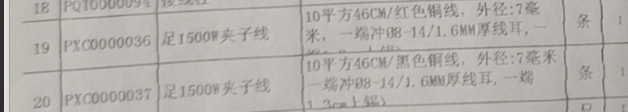 18 PQT0000094
19 PXC0000036 足1500W夹子线 10平方46CM/红色铜线，外径:7毫
米，一端冲Ø8-14/1.6MM厚线耳,一 条 1
20 PXC0000037 足1500W夹子线 10平方46CM/黑色铜线，外径:7毫米
一端冲Ø8-14/1.6MM厚线耳,一端 条 1
1.3cm上锡)